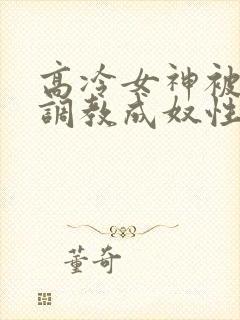 高冷女神被
調教成奴性
董奇